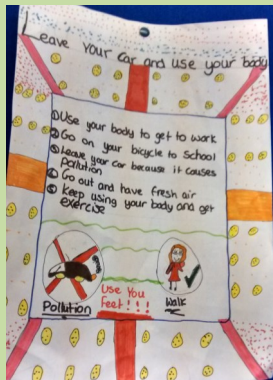 Leave Your Car and use your body
① Use your body to get to work
② Go on your bicycle to School
③ Leave your car because it causes
pollution
④ Go out and have fresh air
⑤ Keep using your body and get
exercise
Use You
Feet!!!
Pollution
Walk